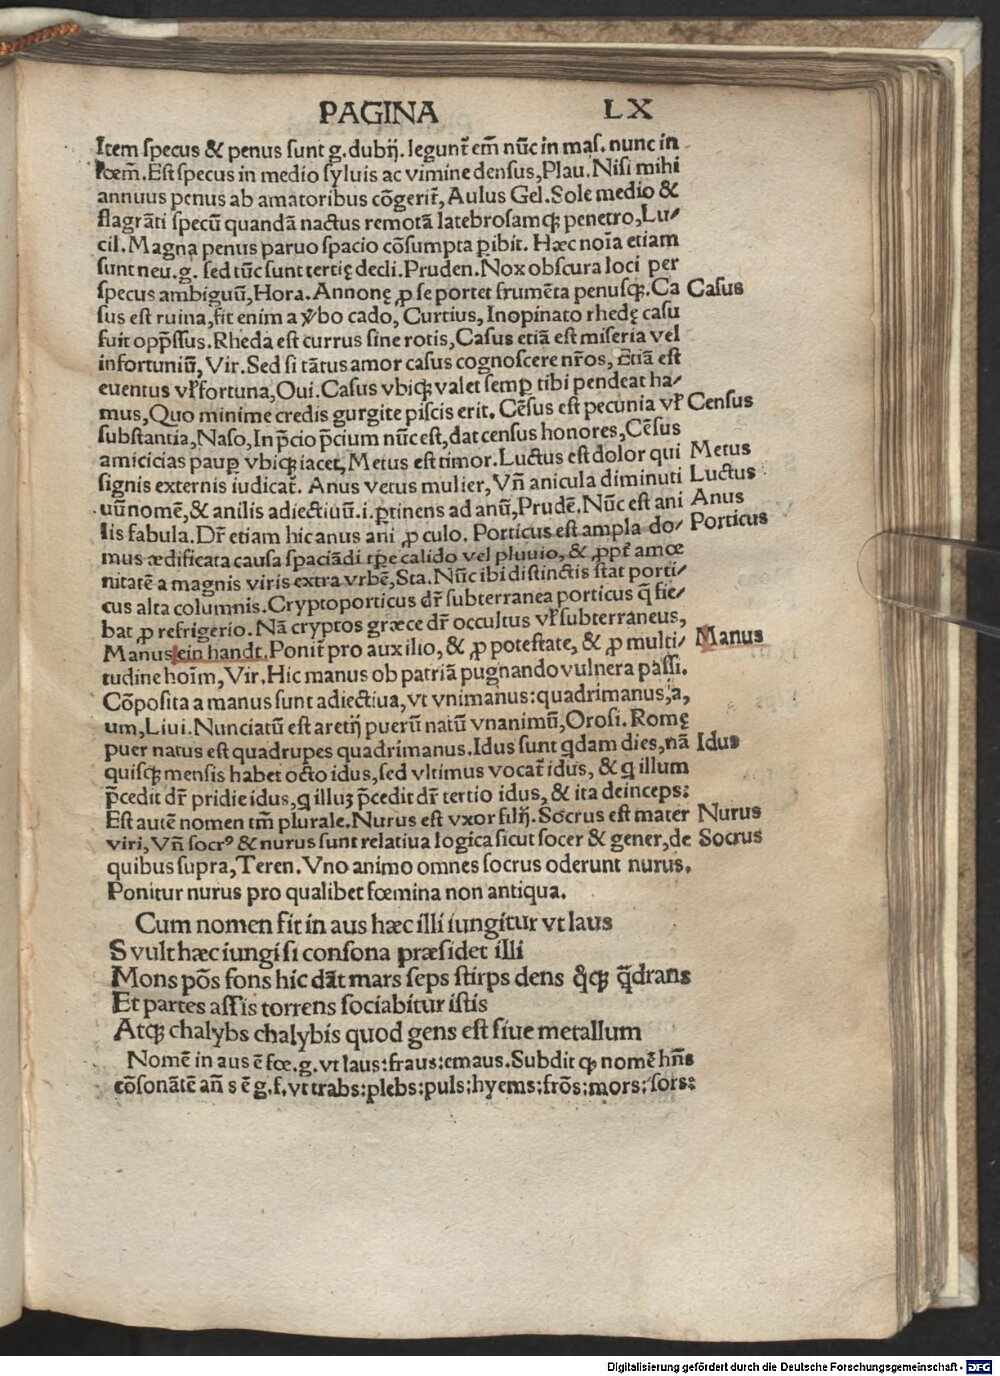 PAGINA LX
Item specus & penus sunt g. dubij. legunt̃ em̃ nũc in mas. nunc in
fœm̃. Est specus in medio syluis ac vimine densus, Plau. Nisi mihi
annuus penus ab amatoribus cõgerit̃, Aulus Gel. Sole medio &
flagrãti specũ quandã nactus remotã latebrosamqꝫ penetro, Lu⸗
cil. Magna penus paruo spacio cõsumpta ꝑibit. Hæc noĩa etiam
sunt neu. g. sed tũc sunt tertię decli. Pruden. Nox obscura loci per
specus ambiguũ, Hora. Annonę ꝓ se portet frumẽta penusqꝫ. Ca Casus
sus est ruina, fit enim a v̾bo cado, Curtius, Inopinato rhedę casu
fuit opp̃ssus. Rheda est currus sine rotis, Casus etiã est miseria vel
infortuniũ, Vir. Sed si tãtus amor casus cognoscere nr̃os, Etiã est
euentus vł fortuna, Oui. Casus vbiqꝫ valet semꝑ tibi pendeat ha⸗
mus, Quo minime credis gurgite piscis erit. Cẽsus est pecunia vł Census
substantia, Naso, In p̃cio p̃cium nũc est, dat census honores, Cẽsus
amicicias pauꝑ vbiqꝫ iacet, Metus est timor. Luctus est dolor qui Metus
signis externis iudicat̃. Anus vetus mulier, Vñ anicula diminuti Luctus
uũ nomẽ, & anilis adiectiuũ .i. ꝑtinens ad anũ, Prudẽ. Nũc est ani Anus
lis fabula. Dr̃ etiam hic anus ani ꝓ culo. Porticus est ampla do⸗ Porticus
mus ædificata causa spaciãdi tꝑe calido vel pluuio, & ꝓpt̃ amœ
nitatẽ a magnis viris extra vrbẽ, Sta. Nũc ibi distinctis stat porti⸗
cus alta columnis. Cryptoporticus dr̃ subterranea porticus q̃ fie⸗
bat ꝓ refrigerio. Nã cryptos græce dr̃ occultus vł subterraneus,
Manus ein handt. Ponit̃ pro auxilio, & ꝓ potestate, & ꝓ multi⸗ Manus
tudine hoĩm, Vir. Hic manus ob patriã pugnando vulnera passi.
Cõposita a manus sunt adiectiua, vt vnimanus: quadrimanus, a,
um, Liui. Nunciatũ est aretij puerũ natũ vnanimũ, Orosi. Romę
puer natus est quadrupes quadrimanus. Idus sunt q̃dam dies, nã Idus
quisqꝫ mensis habet octo idus, sed vltimus vocat̃ idus, & q illum
p̃cedit dr̃ pridie idus, q illuꝫ p̃cedit dr̃ tertio idus, & ita deinceps:
Est autẽ nomen tm̃ plurale. Nurus est vxor filij. Socrus est mater Nurus
viri, Vñ socrꝰ & nurus sunt relatiua logica sicut socer & gener, de Socrus
quibus supra, Teren. Vno animo omnes socrus oderunt nurus.
Ponitur nurus pro qualibet fœmina non antiqua.
Cum nomen fit in aus hæc illi iungitur vt laus
S vult hæc iungi si consona præsidet illi
Mons põs fons hic dãt mars seps stirps dens q̃qꝫ q̃drans
Et partes assis torrens sociabitur istis
Atqꝫ chalybs chalybis quod gens est siue metallum
Nomẽ in aus ẽ fœ. g. vt laus: fraus: emaus. Subdit ꝙ nomẽ hñs
cõsonãtẽ añ s ẽ g. f. vt trabs: plebs: puls: hyems: frõs: mors: sors:
Digitalisierung gefördert durch die Deutsche Forschungsgemeinschaft - DFG